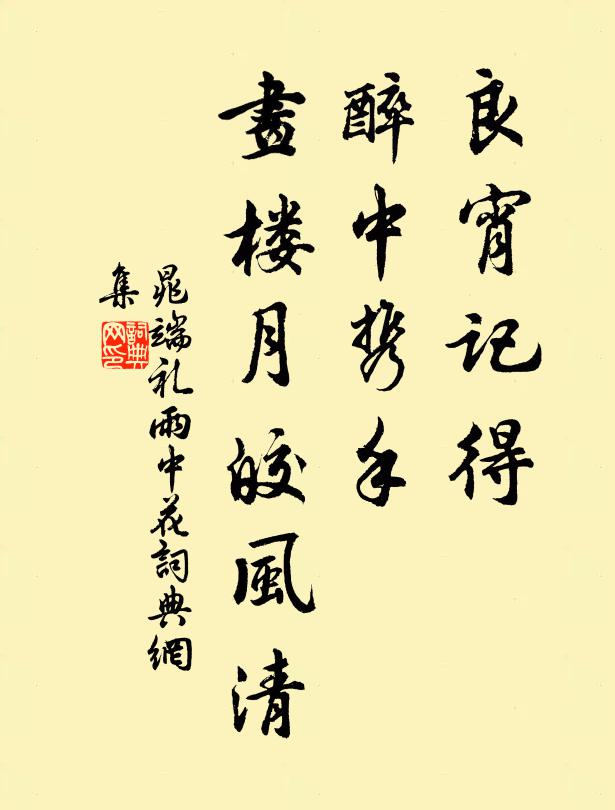 良宵记得
醉中携手
畫楼月皎風清
晁端礼雨中花詞典網
集
詞典
网印